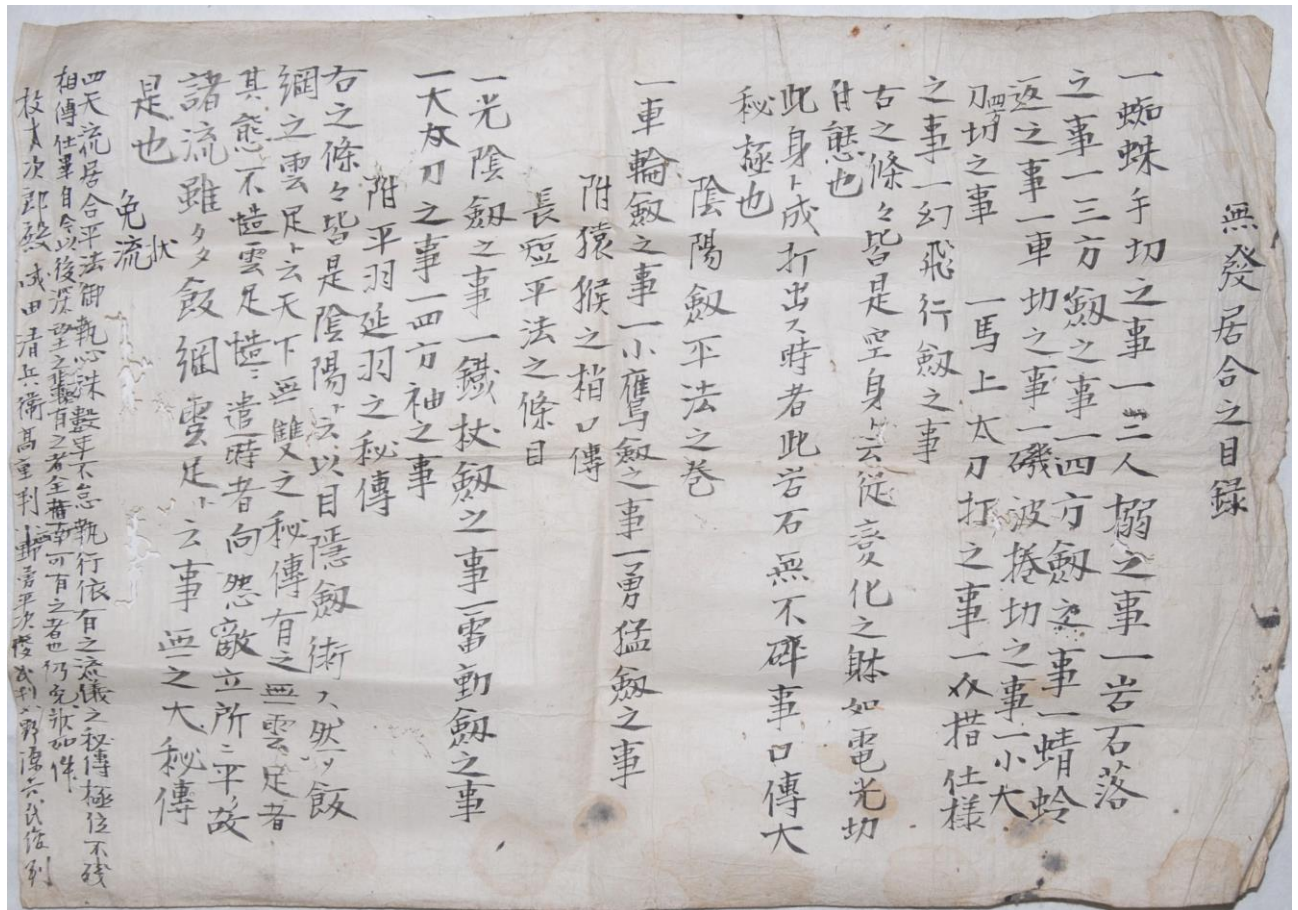 無發居合之目録
一蜘蛛手切之事一三人搦之事一岩石落
之事一三方劔之事一四方劔之事一蜻蛉
返之事一車切之事一磯波捲切之事一小大
刀切之事 一馬上太刀打之事一 措仕様
之事一幻飛行劔之事
右之條々皆是空身ト云從変化之躰如電光切
自態也
此身ト成打出ス時者此岩石無不碎事口傳大
秘極也
陰陽劔平法之巻
一車輪劔之事一小鷹劔之事一勇猛劔之事
附猿猴之梢口傳
長短平法之條目
一光陰劔之事一鐵杖劔之事一雷動劔之事
一大太刀之事一四方袖之事
附平羽延羽之秘傳
右之條々皆是陰陽ト云以目隱劔術ス然ツ飯
綱之雲足ト云天下無雙之秘傳有之無雲足者
其態不 雲足 遣時者向怨敵立所ニ平ク故
諸流雖多飯綱雲足ト云事無之大秘傳
是也
免状
流
四天流居合平法御執心殊數年不怠執行依有之流儀之秘傳極位不残
相傳仕畢自今以後深望之輩有之者全 可有之者也仍免狀如件
次郎殿 成田清兵衛高重判 野 平次 判 野源六氏俊判